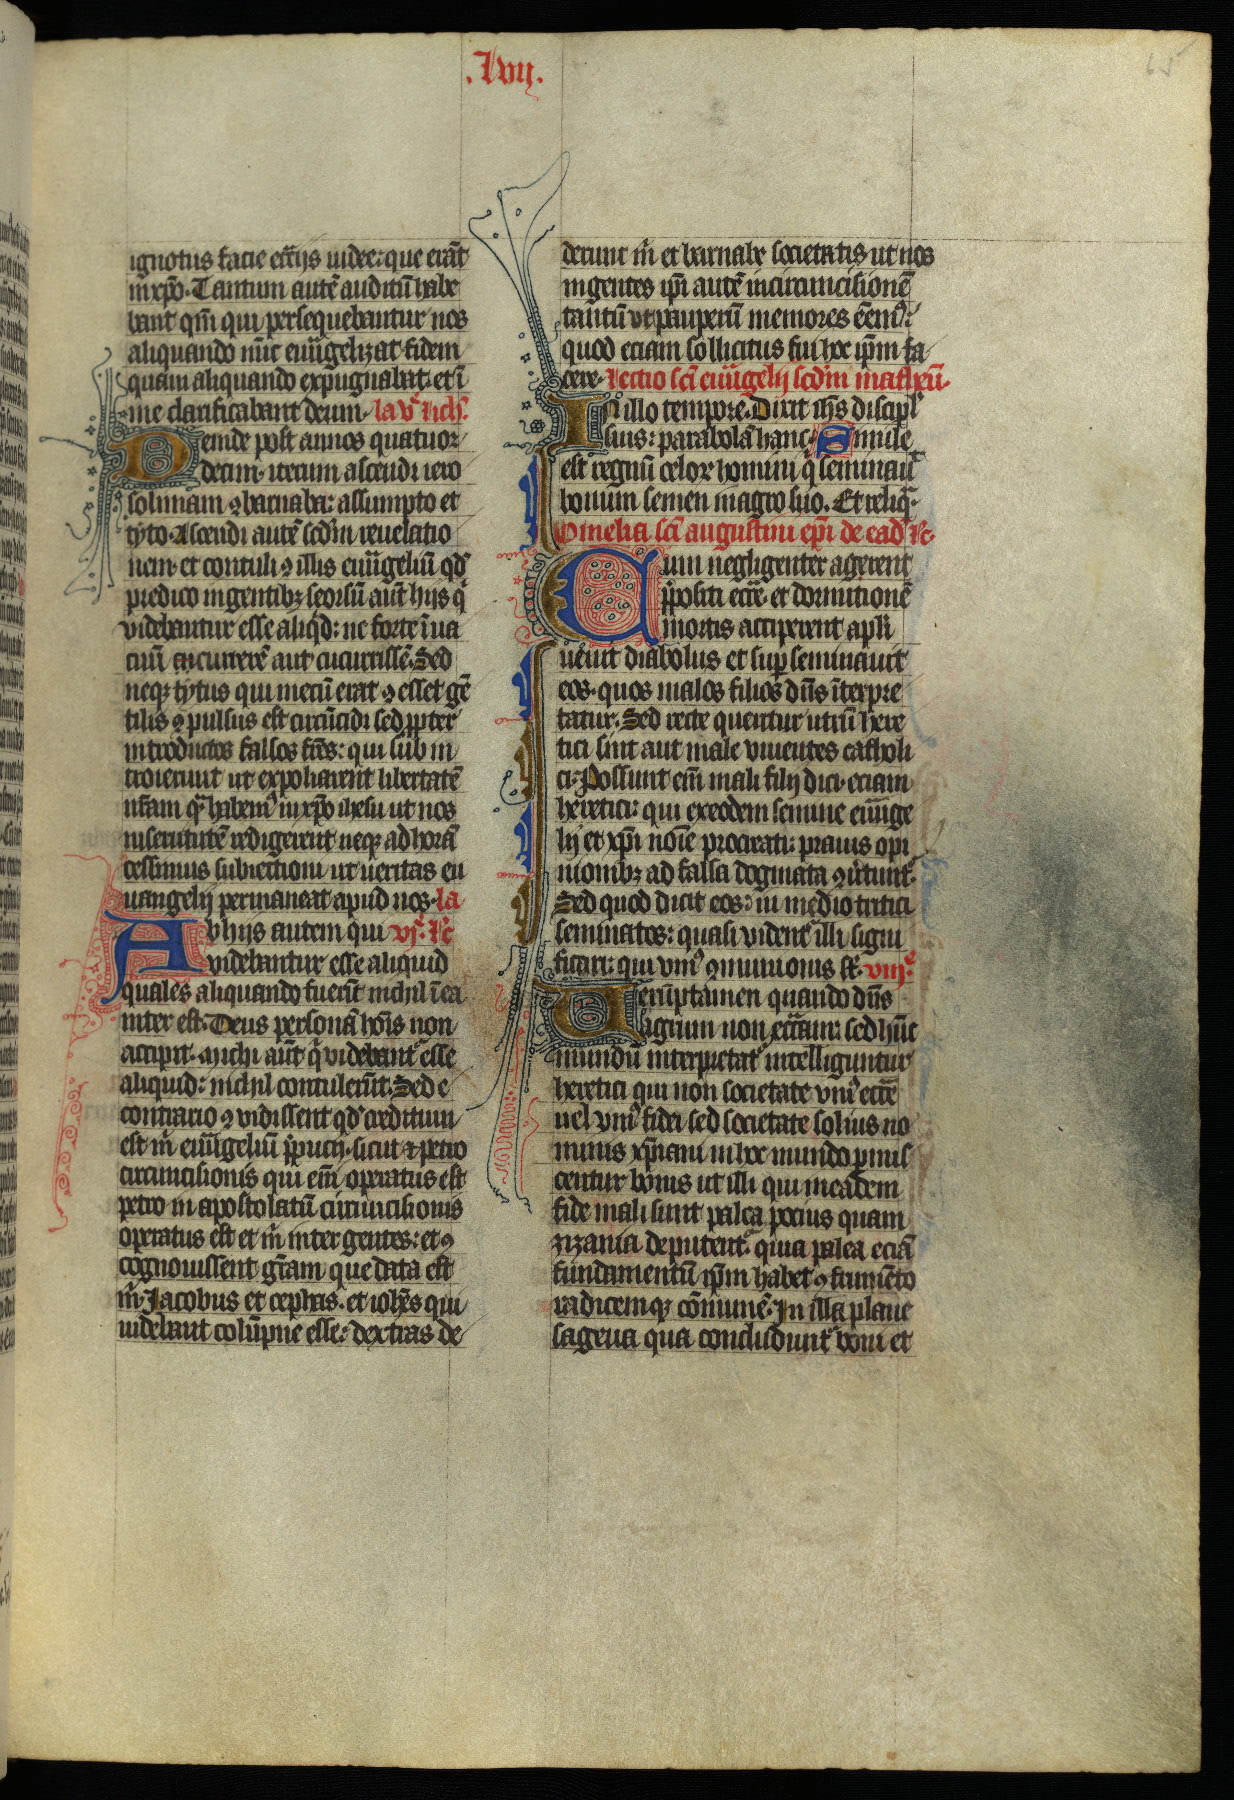 .lvij.
65
ignotus facie eccͥijs iudee: que erāt
in xp̄o. Tantum autē auditū habe
bant qm̄ qui persequebantur nos
aliquando nūc euūgelizat fidem
quam aliquando expugnabat: et ī
me clarificabant deum. la vͣ
Deinde post annos quatuor
decim. iterum ascendi iero
solimam ꝯ barnaba: assumpto et
tyto. Ascendi autē scd̄m reuelatio
nem. et contuli ꝯ illis euūgeliū qd̛
predico in gentibꝫ seorsū aūt hijs qͥ
videbantur esse aliqͥd: ne forte ī ua
cuū cucurrerē aut cucurrissē. Sed
neqꝫ tytus qui mecū erat ꝯ esset gē
tilis ꝯpulsus est circūcidi sed ꝓpter
introductos falsos frēs: qui sub in
troierunt ut expoliarent libertatē
nr̄am qͣ habemꝰ in xp̄o ihesu ut nos
in seruitutē redigerent neqꝫ ad horā
cessimus subiectioni ut ueritas eu
uangelij permaneat apud nos. la
Ab hijs autem qui vjͣ. R̄c
videbantur esse aliquid
quales aliquando fuerūt nichil mea
inter est. Deus personā hoīs non
accipit. michi aūt qͥ videbant̛ esse
aliquid: nichil contulerūt. Sed e
contrario ꝯ vidissent qd̛ creditum
est m̄ euūgeliū p̄pucij. sicut ⁊ petro
circuncisionis qui em̄ operatus est
petro in apostolatū circuncisionis
operatus est et m̄ inter gentes: et ꝯ
cognouissent gr̄am que data est
m̄. Jacobus et cephas. et ioh̄es qui
videbant colūpne esse: dextras de
derunt m̄ et barnabe societatis ut nos
in gentes ip̄i autē in circuncisionē
tantū ut pauperū memores eēmꝰ:
quod eciam sollicitus fui hoc ip̄m fa
cere. Lectio sc̄i euūgelij scd̄m matheū.
In illo tempore. Dixit ih̄s discipl̛
suis: parabolā hanc. Simile
est regnū celoꝝ homini qͥ seminauͭ
bonum semen in agro suo. Et reliqͣ.
Omelia sc̄i augustini ep̄i de ead̛ lc̄.
Cum negligenter agerent
p̄positi eccͥe. et dormitionē
mortis acciperent apl̄i
uenit diabolus et sup̱ seminauit
eos. quos malos filios dn̄s īterpre
tatur. Sed recte queritur utrū here
tici sint aut male viuentes catholi
ci. Possunt em̄ mali filij dici. eciam
heretici: qui ex eodem semine euūge
lij et xp̄i noīe procreati: prauis opi
nionibꝫ ad falsa dogmata ꝯu̓tunt̛.
Sed quod dicit eos: in medio tritici
seminatos: quasi vident̛ illi signi
ficari: qui vniꝰ ꝯmunionis st̄. viijͣ
Uerūptamen quando dn̄s
agrum non eccͥam: sed hūc
mundū interpretat̛ intelliguntur
heretici qui non societate vniꝰ eccͥe
uel vniꝰ fidei sed societate solius no
minis xp̄iani in hoc mundo ꝑmis
centur bonis ut illi qui in eadem
fide mali sunt palea pocius quam
zizania deputent̛. quia palea eciā
fundamentū ip̄m habet ꝯ frumēto
radicemqꝫ cōmunē. In illa plane
sagena qua concludunt̛ boni et